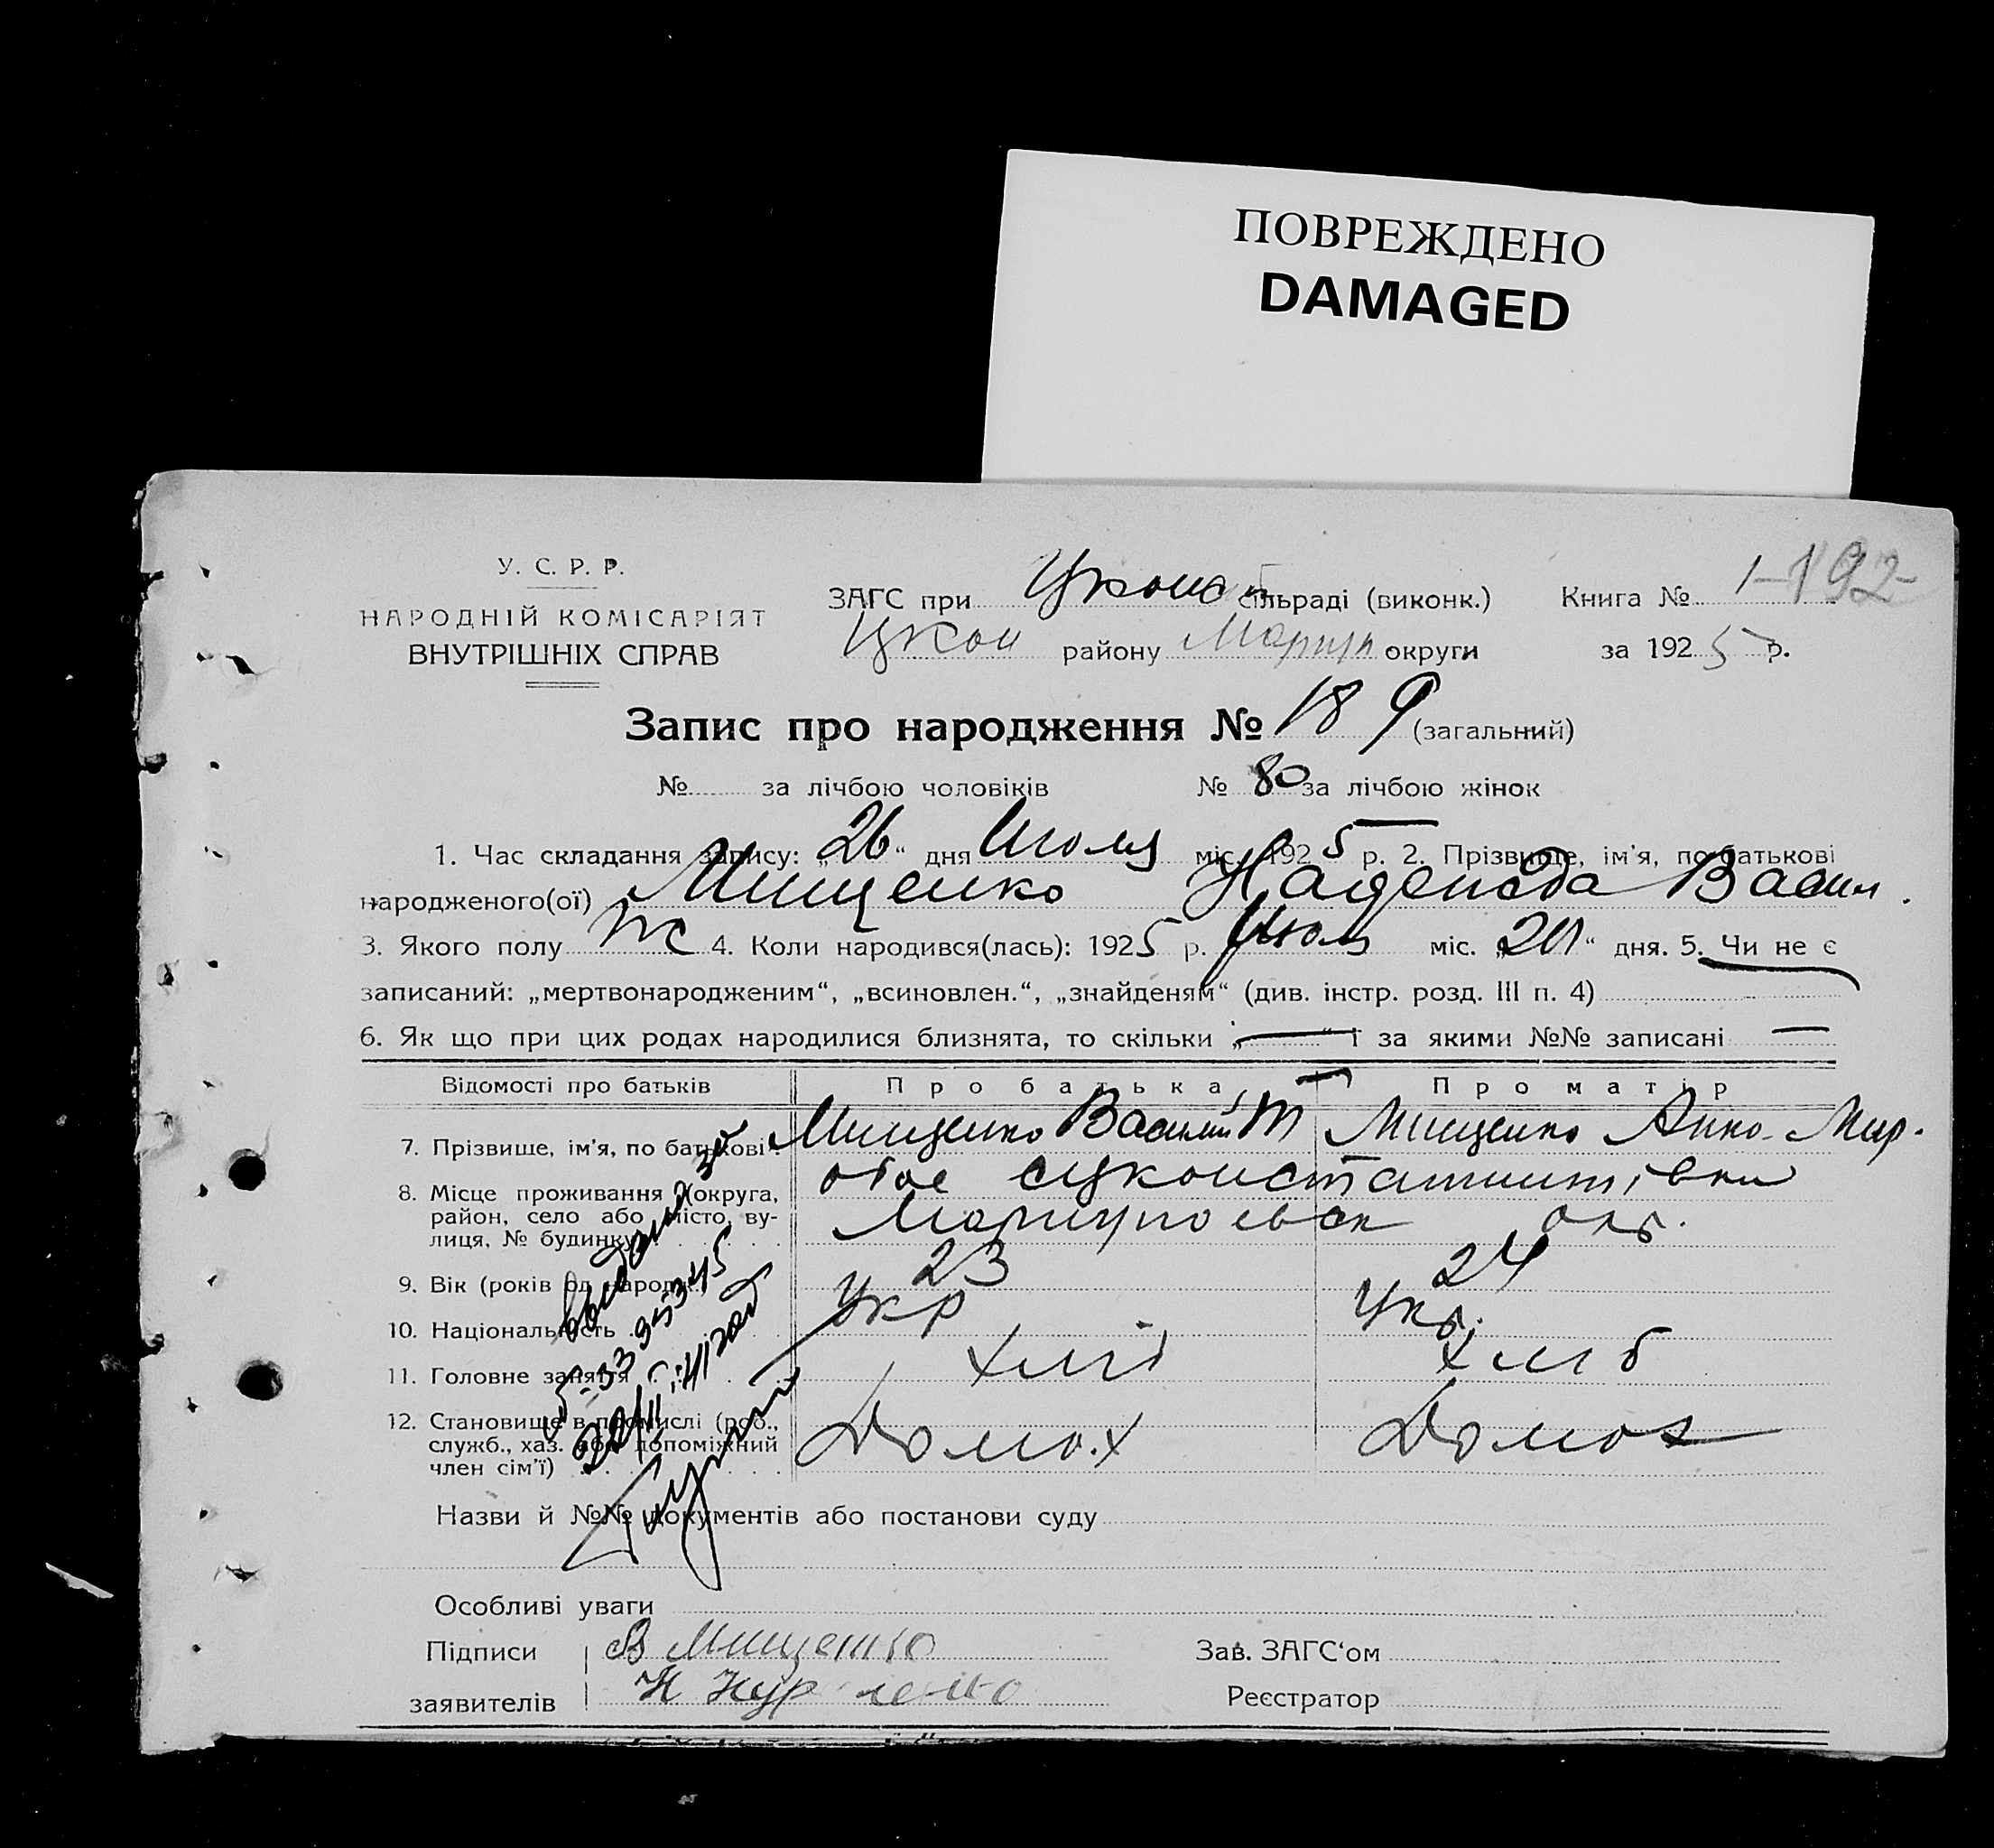 ПОВРЕЖДЕНО
DAMAGED
У. С. Р. Р.
НАРОДНІЙ КОМІСАРІЯТ
ВНУТРІШНІХ СПРАВ
ЗАГС при Цконс сільраді (виконк.) Книга № 1-192
Цкон району Мариуп округи за 1925 р.
Запис про народження № 189 (загальний)
№ за лічбою чоловіків № 80 за лічбою жінок
1. Час складання запису: „26“ дня Июля міс. 1925 р. 2. Прізвище, ім'я, по батькові
народженого(ої) Мищенко Надежда Васил.
3. Якого полу ж 4. Коли народився(лась): 1925 р. Июля міс. „20“ дня. 5. Чи не є
записаний: „мертвонародженим“, „всиновлен.“, „знайденям“ (див. інстр. розд. III п. 4)
6. Як що при цих родах народилися близнята, то скільки „—“ і за якими №№ записані —
Відомості про батьків Про батька Про матір
7. Прізвище, ім'я, по батькові Мищенко Василий Т Мищенко Анна Мир.
8. Місце проживання (округа, район, село або місто, вулиця, № будинку) обое сцконстантинівки
Мариупольск окр.
9. Вік (років од народж.) 23 24
10. Національність Укр Укр.
11. Головне заняття хліб хліб
12. Становище в промислі (роб., служб., хаз. або допоміжний член сім'ї) Домох Домох
Назви й №№ документів або постанови суду
Особливі уваги
Підписи В Мищенко Зав. ЗАГС‘ом
заявителів Н Реєстратор